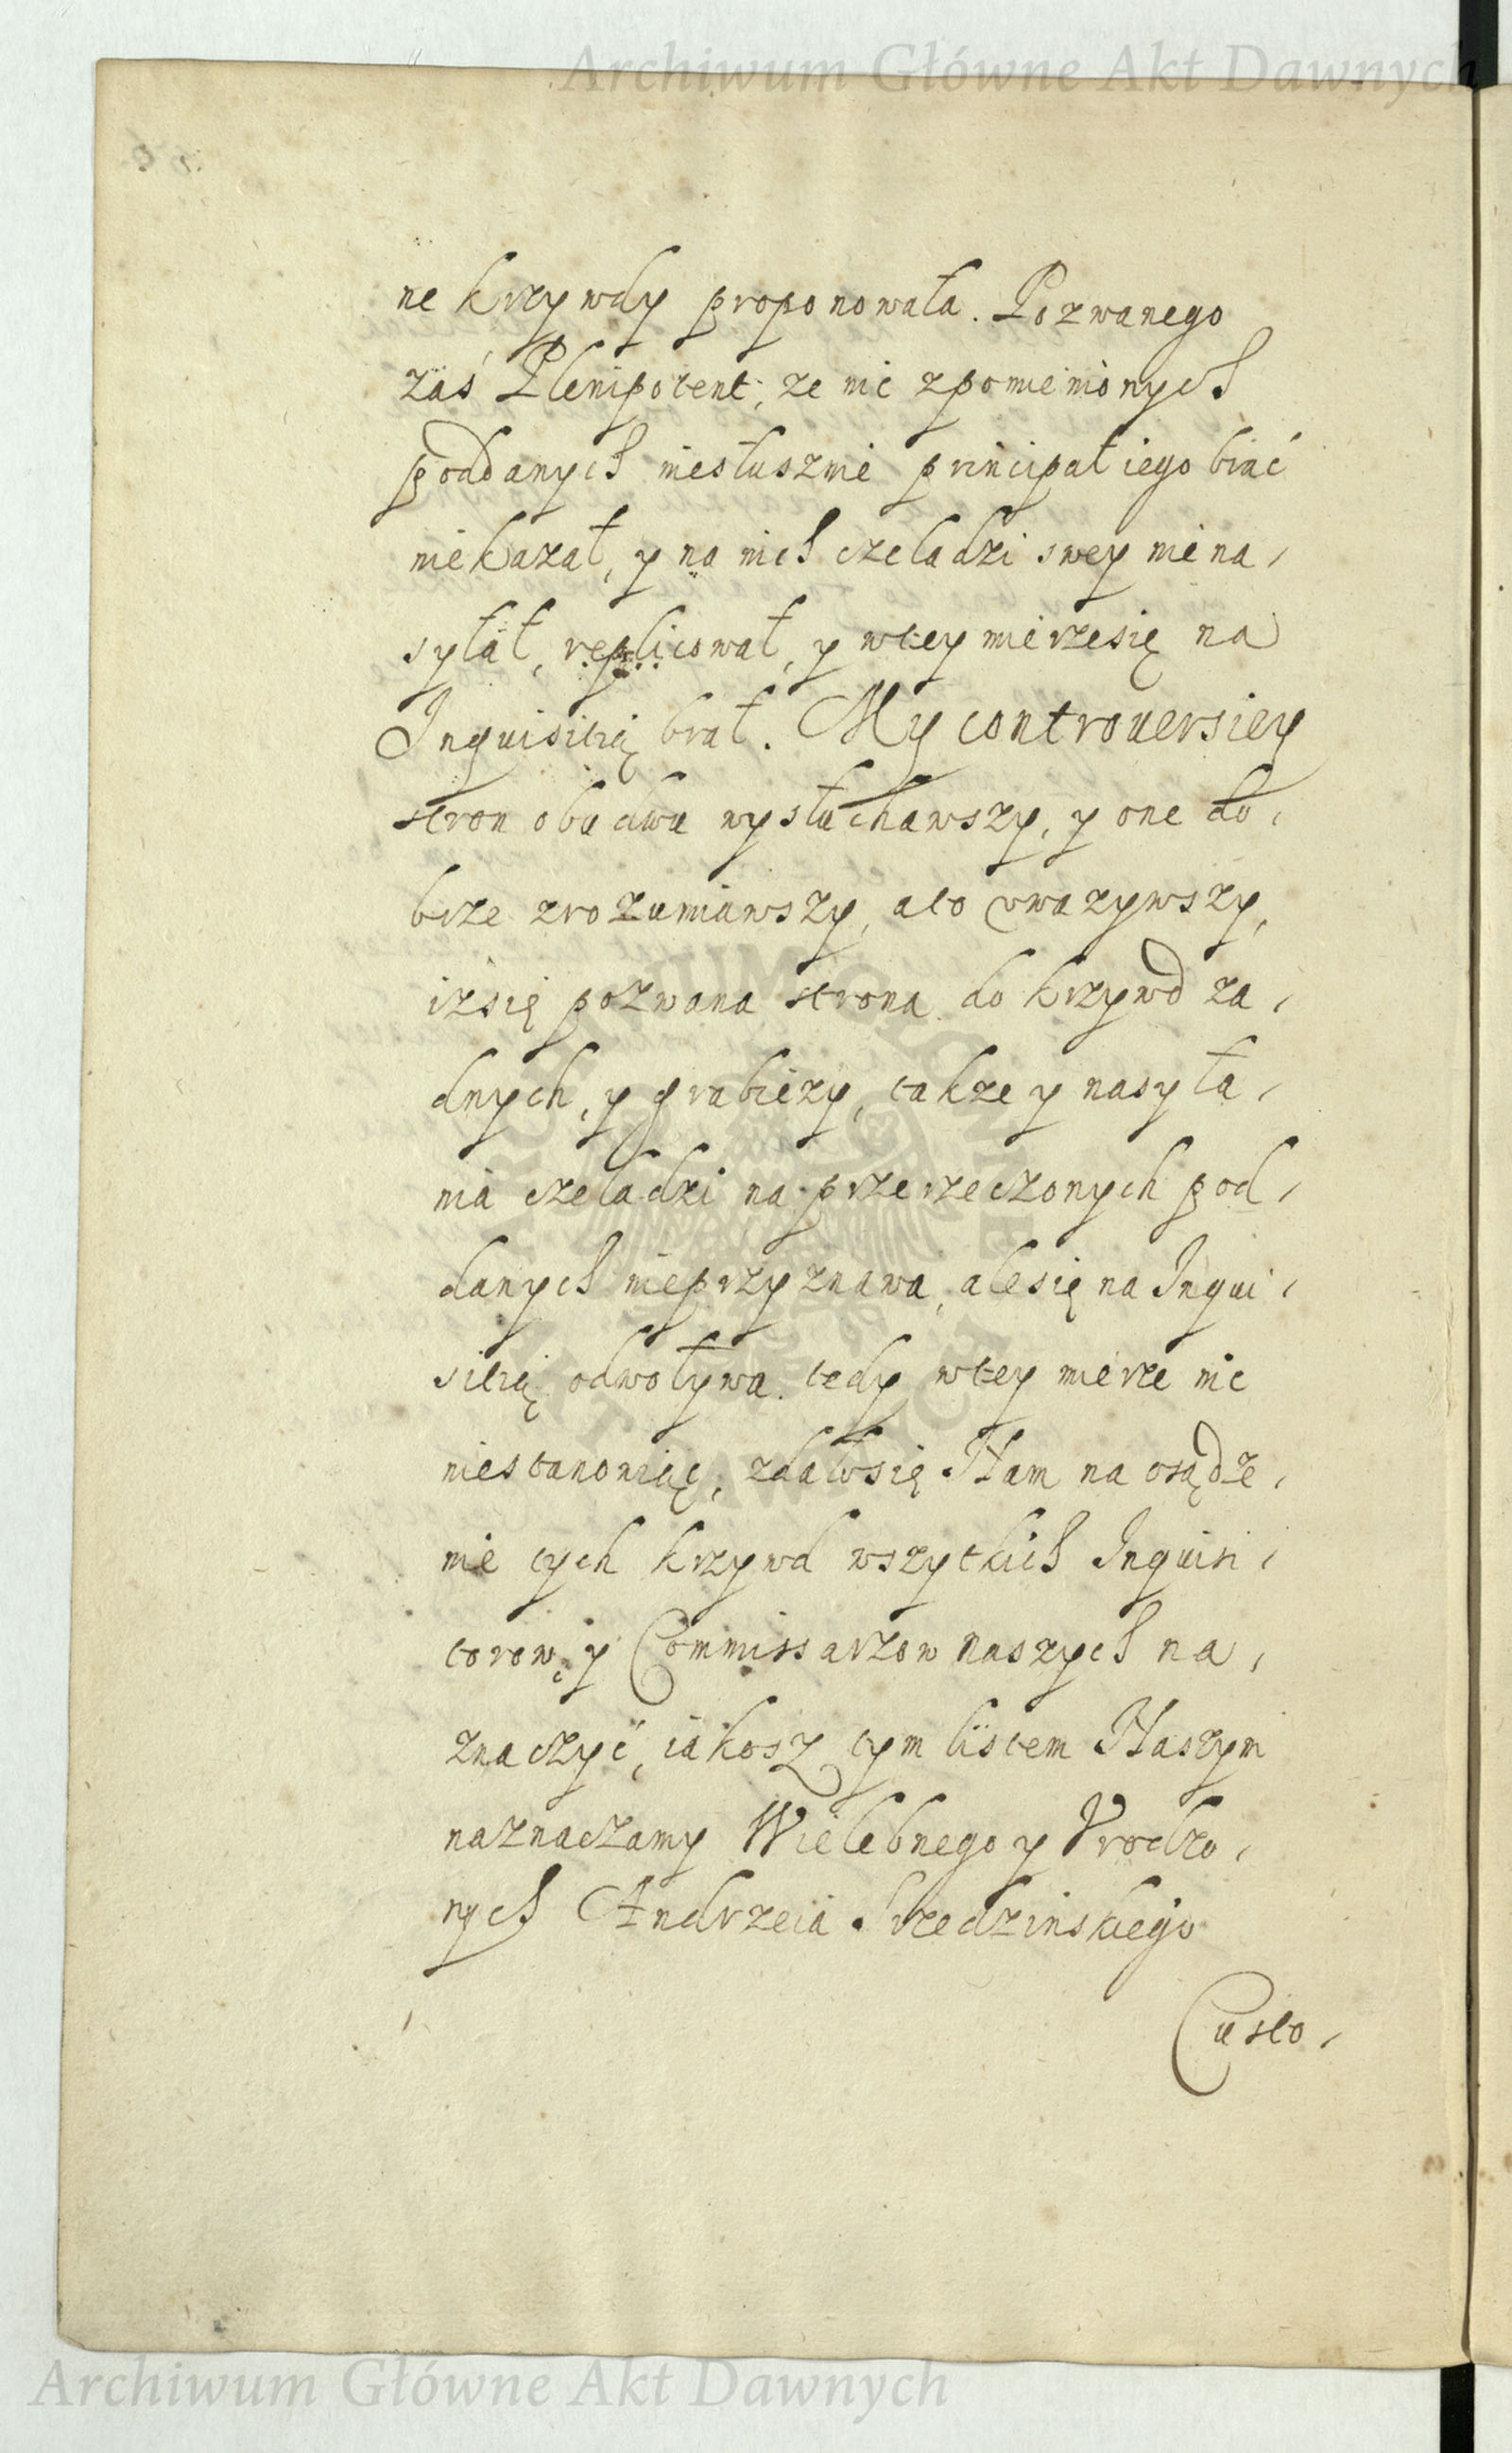 Archiwum Główne Akt Dawnych
ne krzywdy proponowała. Pozwanego
zaś Plenipotent, ze nic zpomienionych
poddanych niesłusznie principał iego brać
niekazał, y na nich czeladzi swey niena,
syłał, replicował, y wtey mierzesię na
Inquisitią brał. My controuersiey
stron obudwu wysłuchawszy, y one do,
brze zrozumiawszy, ato vwazywszy,
izsię pozwana strona do krzywd za,
dnych, y grabiezy, takze y nasyła,
nia czeladzi na przerzeczonych pod,
danych nieprzyznawa, alesię na Inqui,
sitią odwoływa. tedy wtey mierze nic
niestanowiąc, zdałosię Nam na osądze,
nie tych krzywd wszytkich Inquisi,
torow, y Commissarzow naszych na,
znaczyć, iakosz tym listem Naszym
naznaczamy Wielebnego y Vrodzo,
nych Andrzeia Srzedzinskiego
Custo,
Archiwum Główne Akt Dawnych